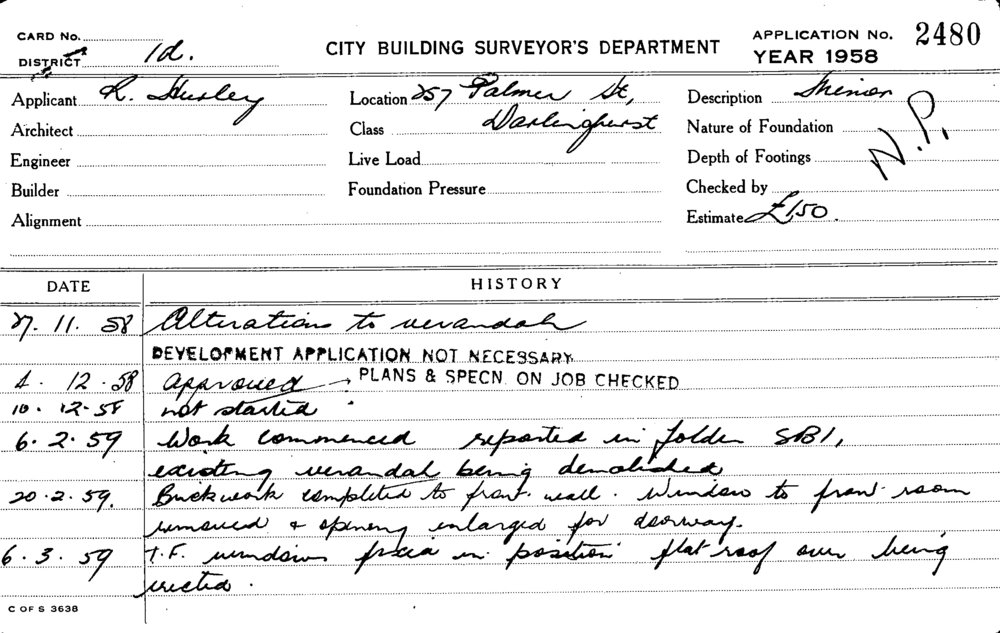 CARD No.
DISTRICT 1d.
CITY BUILDING SURVEYOR'S DEPARTMENT
APPLICATION No. 2480
YEAR 1958
Applicant R. Hurley
Location 257 Palmer St,
Description Minor
Architect
Class Darlinghurst
Nature of Foundation
N.P.
Engineer
Live Load
Depth of Footings
Builder
Foundation Pressure
Checked by
Alignment
Estimate £150.
DATE HISTORY
27. 11. 58 Alterations to verandah
DEVELOPMENT APPLICATION NOT NECESSARY
4. 12. 58 Approved PLANS & SPECN. ON JOB CHECKED
10. 12. 58 not started
6. 2. 59 Work commenced reported in folder SB1,
existing verandah being demolished
20. 2. 59. Brickwork completed to front wall. Window to front room
removed & opening enlarged for doorway.
6. 3. 59 T.F. windows fascia in position flat roof over being
erected.
C OF S 3638